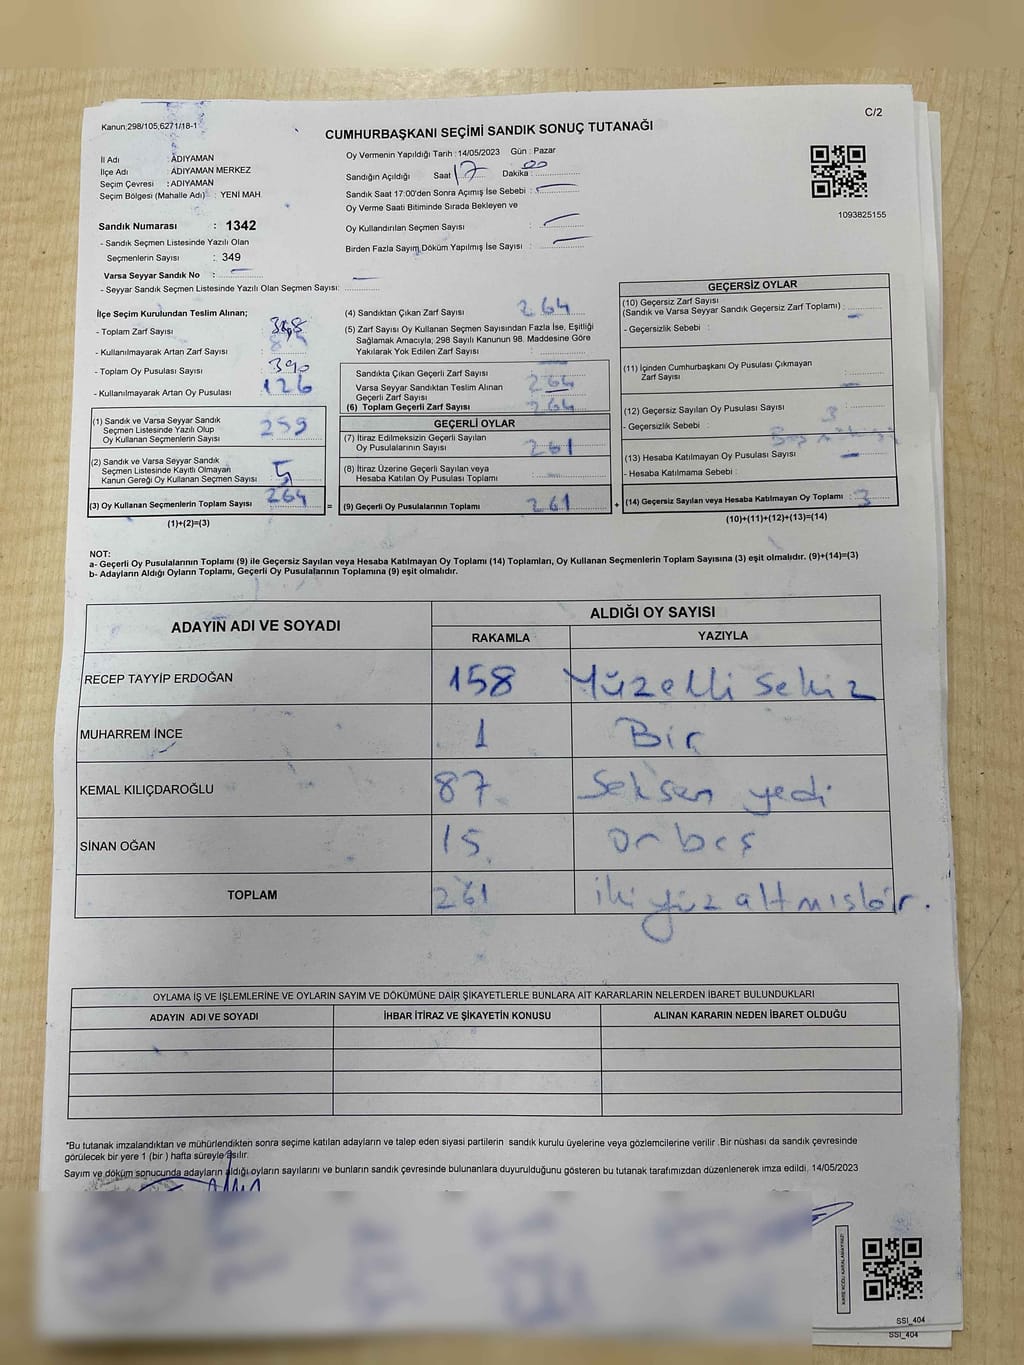 Kanun;298/105,6271/18-1
C/2
CUMHURBAŞKANI SEÇİMİ SANDIK SONUÇ TUTANAĞI
İl Adı : ADIYAMAN
İlçe Adı : ADIYAMAN MERKEZ
Seçim Çevresi : ADIYAMAN
Seçim Bölgesi (Mahalle Adı) : YENİ MAH.
Oy Vermenin Yapıldığı Tarih : 14/05/2023 Gün : Pazar
Sandığın Açıldığı Saat 17 Dakika : 00
Sandık Saat 17:00'den Sonra Açımış İse Sebebi : —
Oy Verme Saati Bitiminde Sırada Bekleyen ve
Oy Kullandırılan Seçmen Sayısı : —
Birden Fazla Sayım Döküm Yapılmış İse Sayısı : —
1093825155
Sandık Numarası : 1342
- Sandık Seçmen Listesinde Yazılı Olan
Seçmenlerin Sayısı : 349
Varsa Seyyar Sandık No : —
- Seyyar Sandık Seçmen Listesinde Yazılı Olan Seçmen Sayısı: —
İlçe Seçim Kurulundan Teslim Alınan;
- Toplam Zarf Sayısı :
- Kullanılmayarak Artan Zarf Sayısı :
- Toplam Oy Pusulası Sayısı : 390
- Kullanılmayarak Artan Oy Pusulası : 126
(1) Sandık ve Varsa Seyyar Sandık
Seçmen Listesinde Yazılı Olup
Oy Kullanan Seçmenlerin Sayısı : 259
(2) Sandık ve Varsa Seyyar Sandık
Seçmen Listesinde Kayıtlı Olmayan
Kanun Gereği Oy Kullanan Seçmen Sayısı : 5
(3) Oy Kullanan Seçmenlerin Toplam Sayısı : 264
(1)+(2)=(3)
(4) Sandıktan Çıkan Zarf Sayısı : 264
(5) Zarf Sayısı Oy Kullanan Seçmen Sayısından Fazla İse, Eşitliği
Sağlamak Amacıyla; 298 Sayılı Kanunun 98. Maddesine Göre
Yakılarak Yok Edilen Zarf Sayısı : —
Sandıkta Çıkan Geçerli Zarf Sayısı
Varsa Seyyar Sandıktan Teslim Alınan : 264
Geçerli Zarf Sayısı
(6) Toplam Geçerli Zarf Sayısı : 264
GEÇERLİ OYLAR
(7) İtiraz Edilmeksizin Geçerli Sayılan
Oy Pusulalarının Sayısı : 261
(8) İtiraz Üzerine Geçerli Sayılan veya
Hesaba Katılan Oy Pusulası Toplamı : —
(9) Geçerli Oy Pusulalarının Toplamı : 261
GEÇERSİZ OYLAR
(10) Geçersiz Zarf Sayısı
(Sandık ve Varsa Seyyar Sandık Geçersiz Zarf Toplamı) : —
- Geçersizlik Sebebi :
(11) İçinden Cumhurbaşkanı Oy Pusulası Çıkmayan
Zarf Sayısı : —
(12) Geçersiz Sayılan Oy Pusulası Sayısı : 3
- Geçersizlik Sebebi :
(13) Hesaba Katılmayan Oy Pusulası Sayısı : —
- Hesaba Katılmama Sebebi :
(14) Geçersiz Sayılan veya Hesaba Katılmayan Oy Toplamı : 3
(10)+(11)+(12)+(13)=(14)
NOT:
a- Geçerli Oy Pusulalarının Toplamı (9) ile Geçersiz Sayılan veya Hesaba Katılmayan Oy Toplamı (14) Toplamları, Oy Kullanan Seçmenlerin Toplam Sayısına (3) eşit olmalıdır. (9)+(14)=(3)
b- Adayların Aldığı Oyların Toplamı, Geçerli Oy Pusulalarının Toplamına (9) eşit olmalıdır.
ADAYIN ADI VE SOYADI
ALDIĞI OY SAYISI
RAKAMLA YAZIYLA
RECEP TAYYİP ERDOĞAN 158 Yüzelli sekiz
MUHARREM İNCE 1 Bir
KEMAL KILIÇDAROĞLU 87 Seksen yedi
SİNAN OĞAN 15 on beş
TOPLAM 261 iki yüz altmışbir.
OYLAMA İŞ VE İŞLEMLERİNE VE OYLARIN SAYIM VE DÖKÜMÜNE DAİR ŞİKAYETLERLE BUNLARA AİT KARARLARIN NELERDEN İBARET BULUNDUKLARI
ADAYIN ADI VE SOYADI İHBAR İTİRAZ VE ŞİKAYETİN KONUSU ALINAN KARARIN NEDEN İBARET OLDUĞU
*Bu tutanak imzalandıktan ve mühürlendikten sonra seçime katılan adayların ve talep eden siyasi partilerin sandık kurulu üyelerine veya gözlemcilerine verilir .Bir nüshası da sandık çevresinde
görülecek bir yere 1 (bir ) hafta süreyle asılır.
Sayım ve döküm sonucunda adayların aldığı oyların sayılarını ve bunların sandık çevresinde bulunanlara duyurulduğunu gösteren bu tutanak tarafımızdan düzenlenerek imza edildi. 14/05/2023
KARE KODU KARALAMAYINIZ!
SSI_404
SSI_404